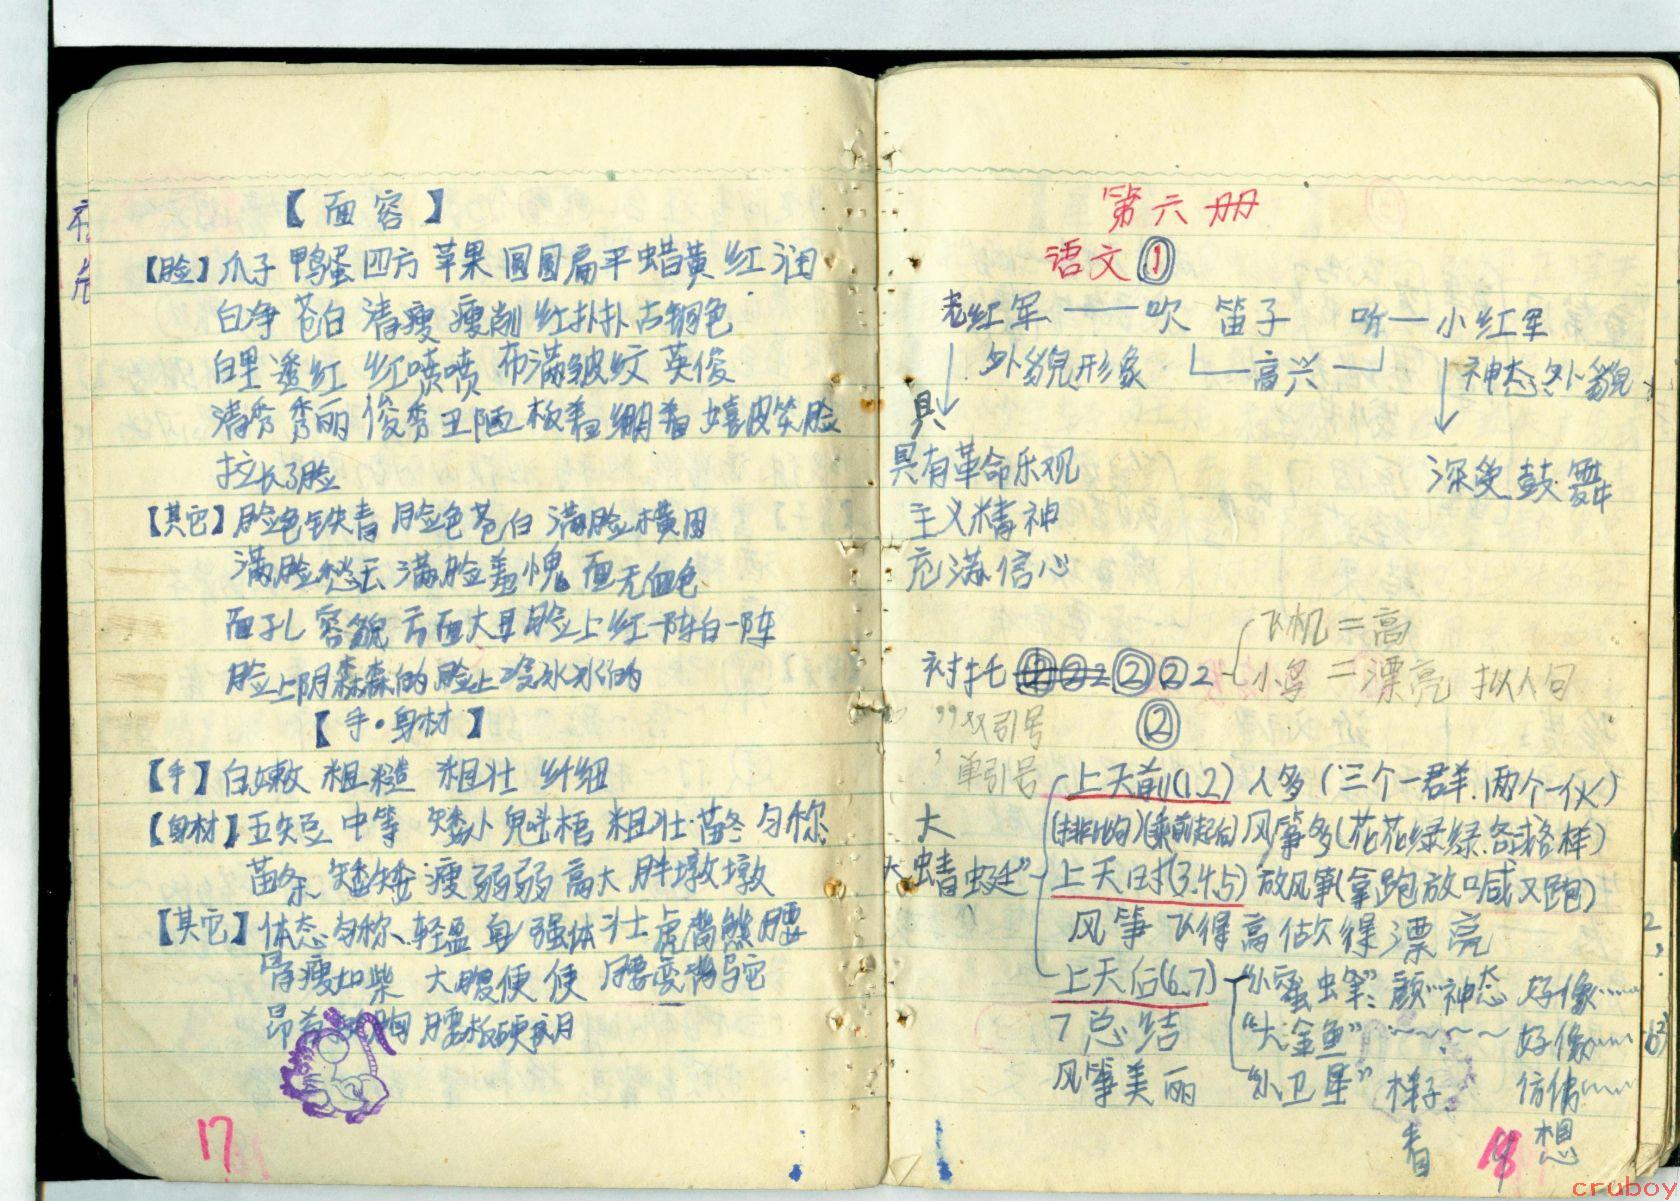 【面容】
【脸】爪子 鸭蛋 四方 苹果 圆圆 扁平 蜡黄 红润
白净 苍白 清瘦 瘦削 红扑扑 古铜色
白里透红 红喷喷 布满皱纹 英俊
清秀 秀丽 俊秀 丑陋 板着 绷着 嬉皮笑脸
拉长了脸
【其它】脸色铁青 脸色苍白 满脸横肉
满脸愁云 满脸羞愧 面无血色
面孔 容貌 方面大耳 脸上红一阵白一阵
脸上阴森森的 脸上冷冰冰的
【手·身材】
【手】白嫩 粗糙 粗壮 纤细
【身材】五短 中等 矮小 魁梧 粗壮 苗条 匀称
苗条 矮矮 瘦弱弱 高大 胖墩墩
【其它】体态匀称、轻盈 身强体壮 虎背熊腰
骨瘦如柴 大腹便便 腰弯背驼
昂首 胸 腰板硬朗
17
第六册
语文①
老红军——吹 笛子 吹—小红军
外貌形象 高兴 神态外貌
具
具有革命乐观
主义精神
深受鼓舞
充满信心
飞机=高
衬托 ② ② 2 小鸟=漂亮 拟人句
”双引号 ②
’单引号
上天前(1.2) 人多(三个一群.两个一伙)
大 (排比句)(乘前起后) 风筝多(花花绿绿.各式各样)
大“蜻蜓” 上天时(3.4.5) 放风筝(拿跑放喊又跑)
风筝飞得高做得漂亮
上天后(6.7) 神态 好像……
7总结 “大金鱼” ~~~~ 好像……
风筝美丽 “小卫星” 样子 仿佛……
看 想
18
cruboy